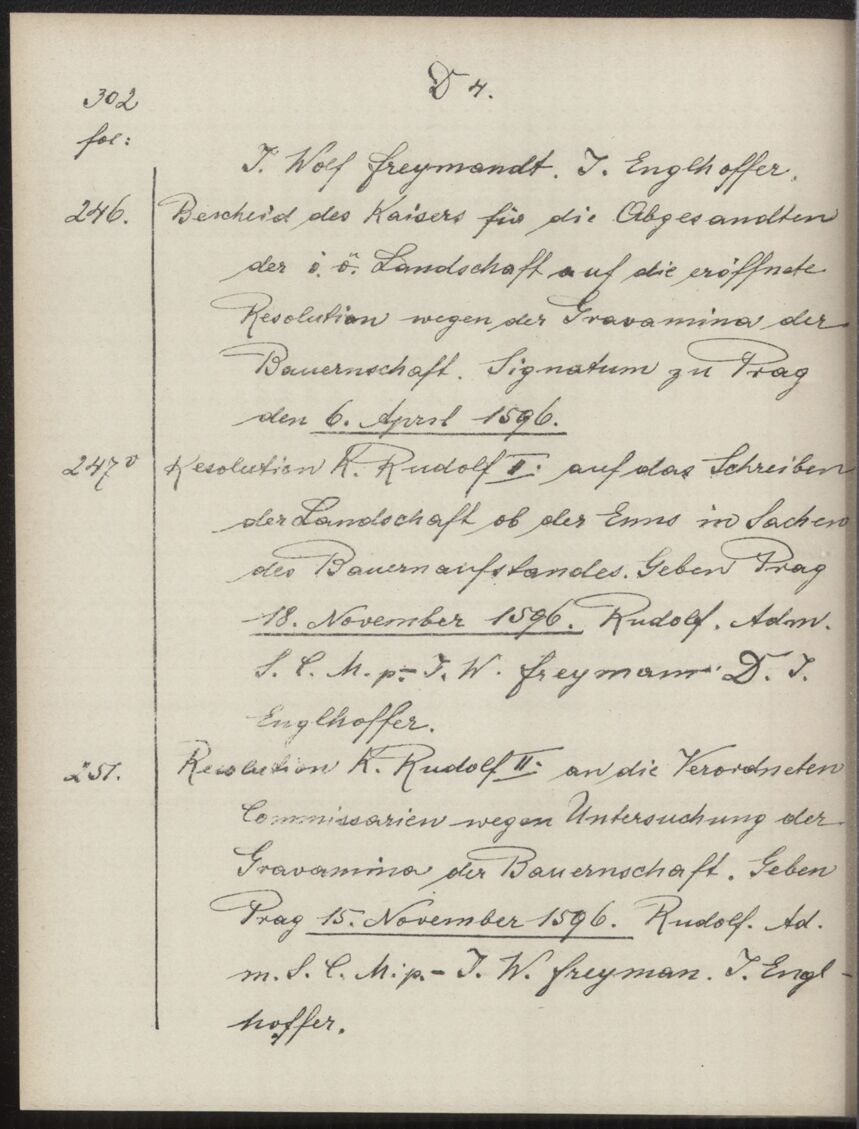 302
D 4.
fol:
T. Wolf freymandt. T. Englhoffer.
246. Bescheid des Kaisers für die Abgesandten
der o. ö. Landschaft auf die eröffnete
Resolution wegen der Gravamina der
Bauernschaft. Signatum zu Prag
den 6. April 1596.
247v Resolution K. Rudolf II. auf das Schreiben
der Landschaft ob der Enns in Sachen
des Bauernaufstandes. Geben Prag
18. November 1596. Rudolf. Adm.
S. C. M. p.- T. W. freymann D. T.
Englhoffer.
251. Resolution K. Rudolf II. an die Verordneten
Commissarien wegen Untersuchung der
Gravamina der Bauernschaft. Geben
Prag 15. November 1596. Rudolf. Ad.
m. S. C. M. p.- T. W. freyman. T. Engl-
hoffer.